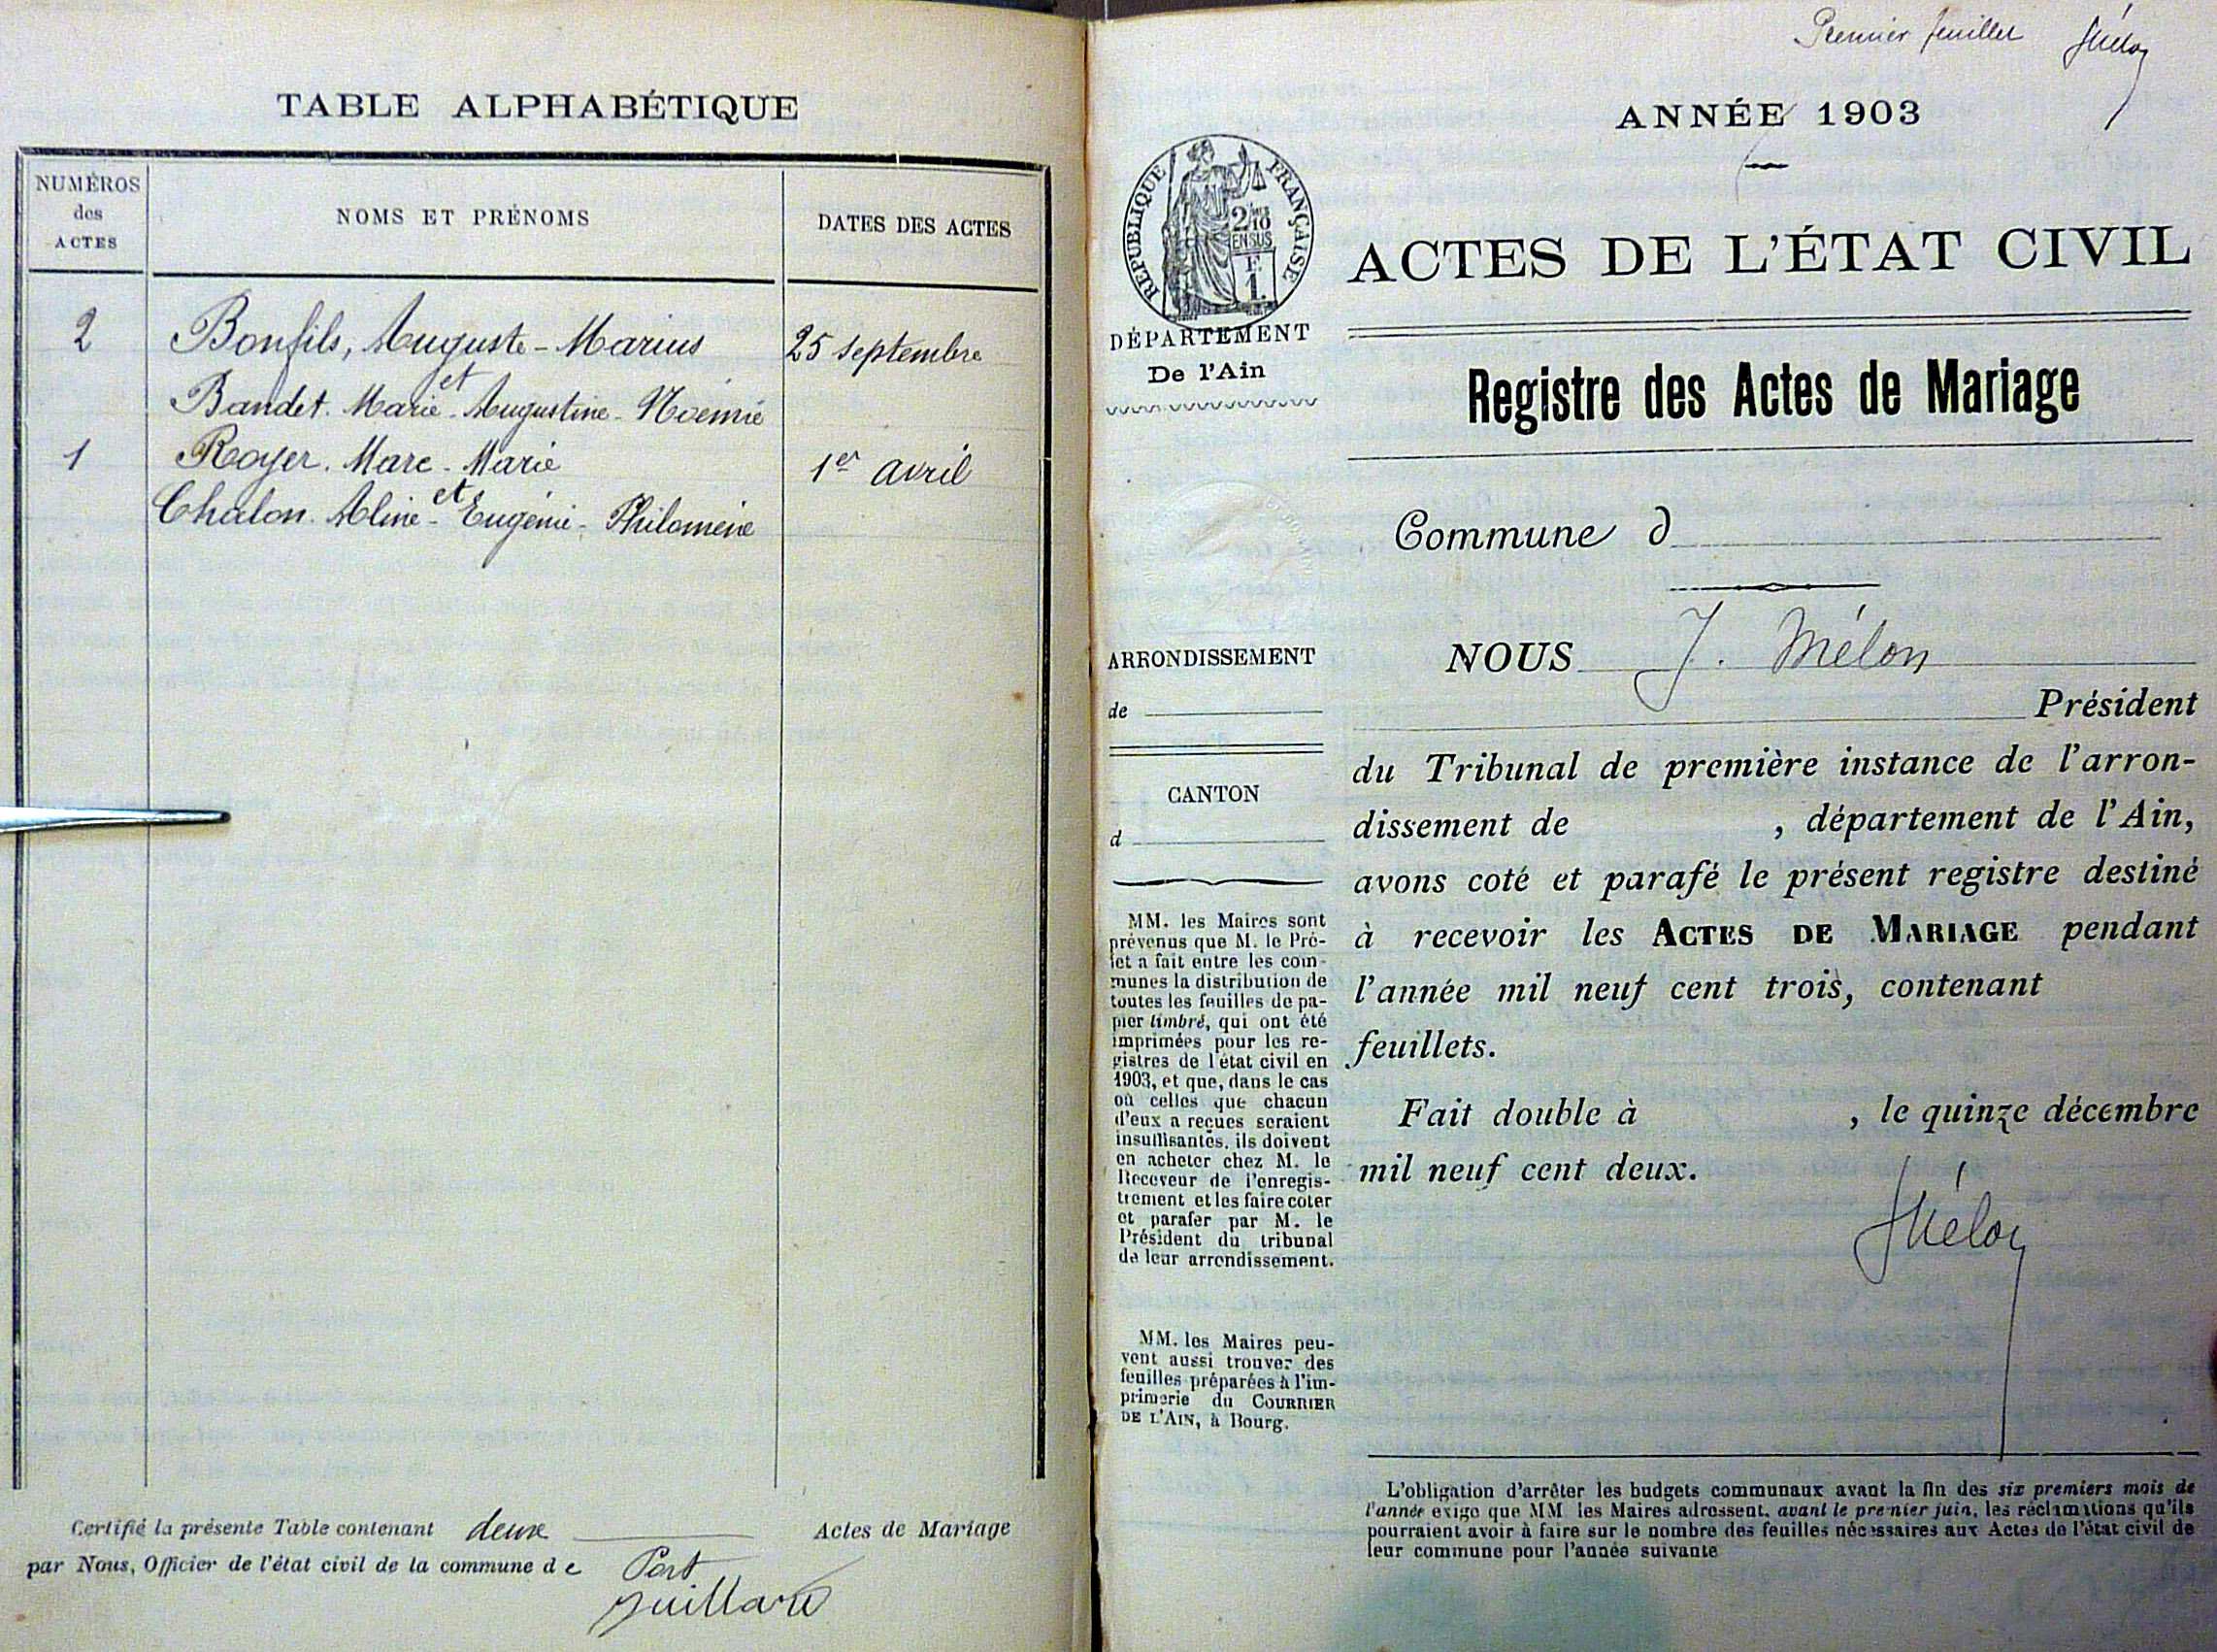 TABLE ALPHABÉTIQUE
NUMÉROS
des
ACTES
NOMS ET PRÉNOMS
DATES DES ACTES
2
Bonfils, Auguste - Marius
25 septembre
et
Bandet. Marie - Augustine - Noémie
1
Royer. Marc - Marie
1er avril
et
Chalon. Aline - Eugénie - Philomène
Certifié la présente Table contenant deux Actes de Mariage
par Nous, Officier de l'état civil de la commune de Port
Juillard
Premier feuillet JMélon
ANNÉE 1903
RÉPUBLIQUE FRANÇAISE
2/10
EN SUS
F.
1.
DÉPARTEMENT
De l'Ain
ACTES DE L'ÉTAT CIVIL
Registre des Actes de Mariage
Commune d
ARRONDISSEMENT
de
CANTON
d
MM. les Maires sont
prévenus que M. le Pré-
fet a fait entre les com-
munes la distribution de
toutes les feuilles de pa-
pier timbré, qui ont été
imprimées pour les re-
gistres de l'état civil en
1903, et que, dans le cas
où celles que chacun
d'eux a reçues seraient
insuffisantes, ils doivent
en acheter chez M. le
Receveur de l'enregis-
trement et les faire coter
et parafer par M. le
Président du tribunal
de leur arrondissement.
MM. les Maires peu-
vent aussi trouver des
feuilles préparées à l'im-
primerie du COURRIER
DE L'AIN, à Bourg.
NOUS J. Mélon
Président
du Tribunal de première instance de l'arron-
dissement de , département de l'Ain,
avons coté et parafé le présent registre destiné
à recevoir les ACTES DE MARIAGE pendant
l'année mil neuf cent trois, contenant
feuillets.
Fait double à , le quinze décembre
mil neuf cent deux.
JMélon
L'obligation d'arrêter les budgets communaux avant la fin des six premiers mois de
l'année exige que MM les Maires adressent, avant le premier juin, les réclamations qu'ils
pourraient avoir à faire sur le nombre des feuilles nécessaires aux Actes de l'état civil de
leur commune pour l'année suivante